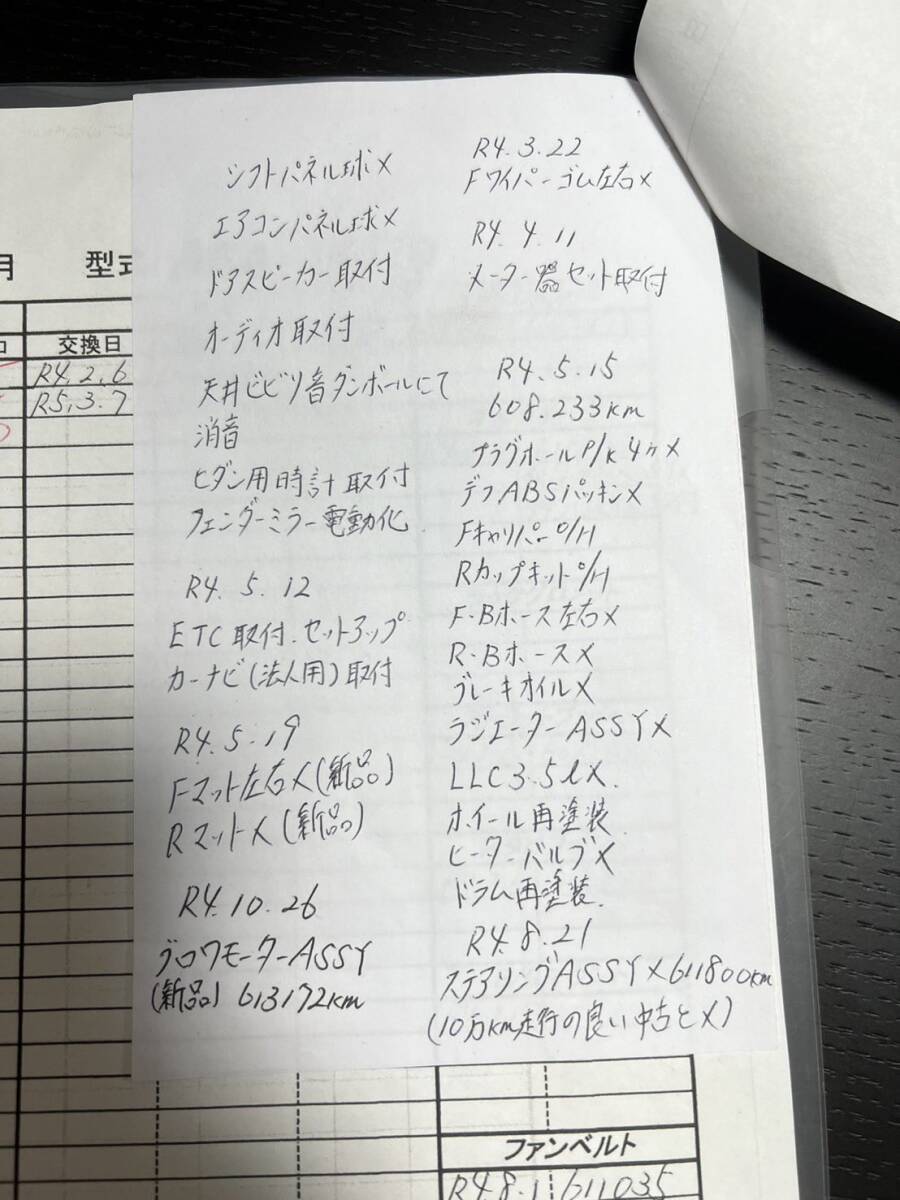 シフトパネル球×
エアコンパネル球×
ドアスピーカー取付
オーディオ取付
天井ビビリ音ダンボールにて
消音
ヒダン用時計取付
フェンダーミラー電動化
R4.5.12
ETC取付.セットアップ
カーナビ(法人用)取付
R4.5.19
Fマット左右×(新品)
Rマット×(新品)
R4.10.26
ブロワモーターASSY
(新品) 613172km
R4.3.22
Fワイパーゴム左右×
R4.4.11
メーター器セット取付
R4.5.15
608.233km
プラグホールP/K 4ケ×
デフABSパッキン×
FキャリパーO/H
RカップキットO/H
F・Bホース左右×
R・Bホース×
ブレーキオイル×
ラジエーターASSY×
LLC3.5ℓ×.
ホイール再塗装
ヒーターバルブ×
ドラム再塗装.
R4.8.21
ステアリングASSY×611800km
(10万km走行の良い中古と×)
月 型式
交換日
R4.2.6
R5.3.7
ファンベルト
R4.8.1 611035